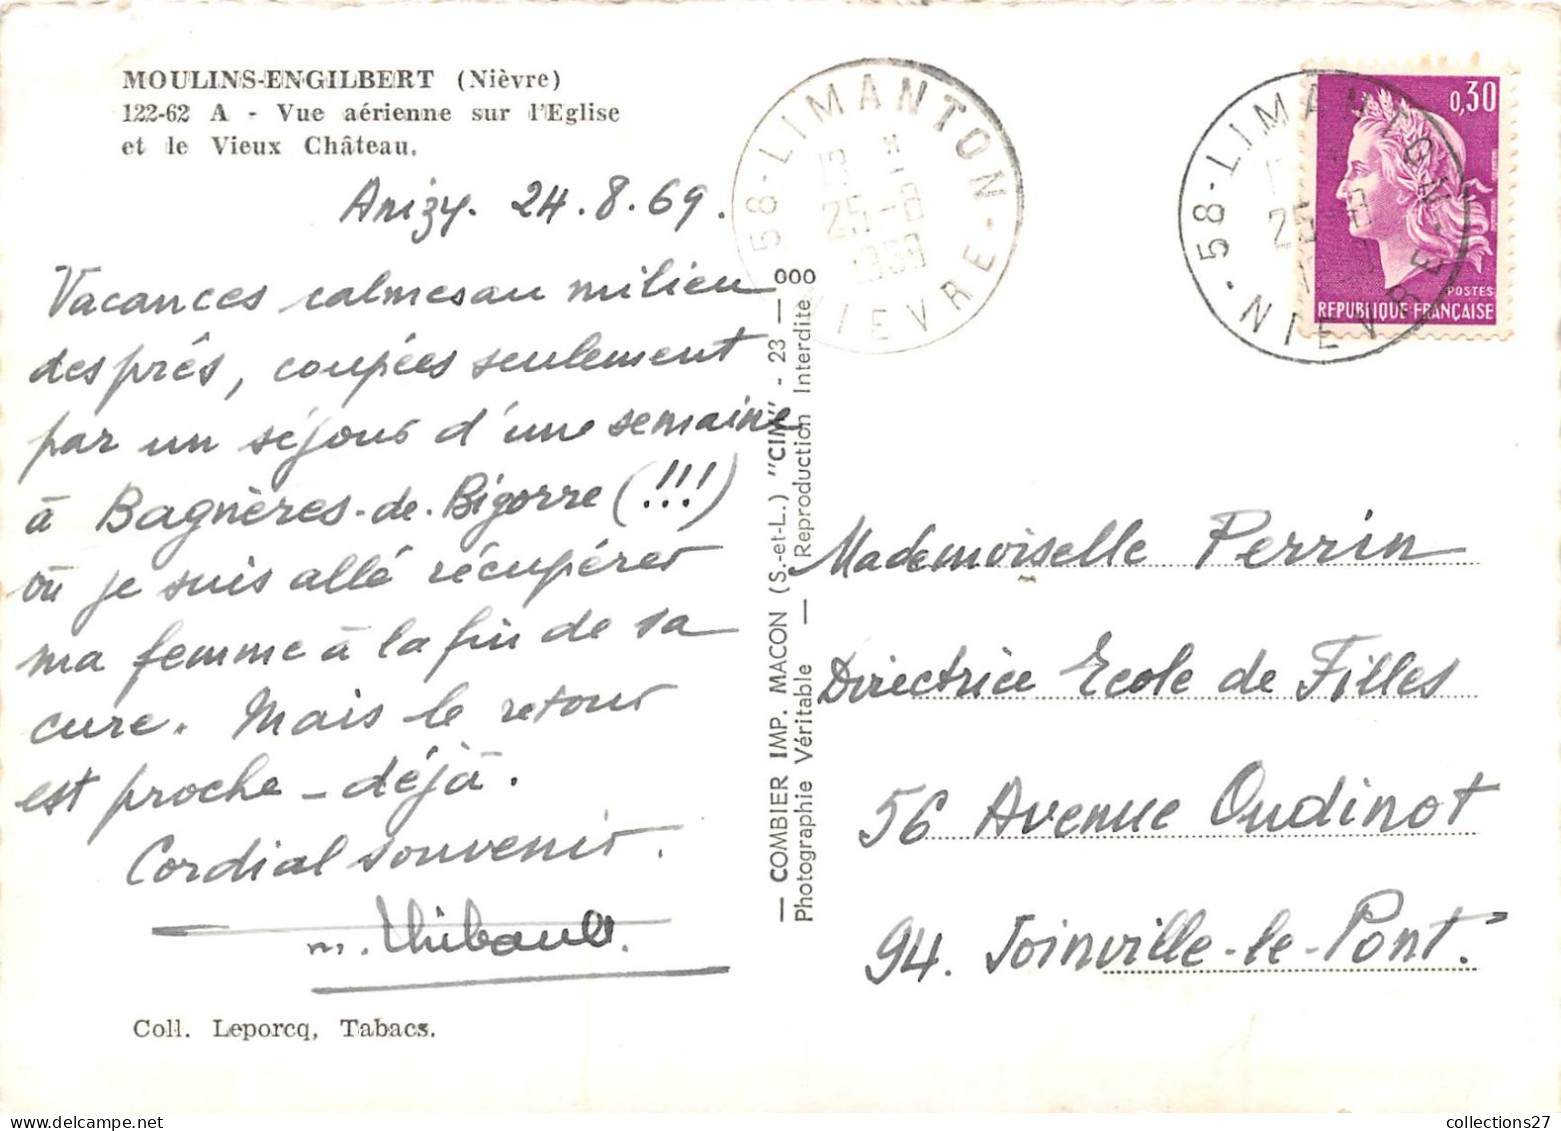 MOULINS-ENGILBERT (Nièvre)
122-62 A - Vue aérienne sur l'Eglise
et le Vieux Château.
Anizy. 24.8.69.
Vacances calmes au milieu
des prés, coupées seulement
par un séjour d'une semaine
à Bagnères-de-Bigorre (!!!)
où je suis allé récupérer
ma femme à la fin de sa
cure. Mais le retour
est proche - déjà.
Cordial souvenir.
m. Thibault.
Coll. Leporcq, Tabacs.
— COMBIER IMP. MACON (S.-et-L.) "CIM" - 23 — 000
Photographie Véritable — Reproduction Interdite
58 - LIMANTON - NIEVRE
25-8
1969
58 - LIMANTON - NIEVRE
0,30
POSTES
REPUBLIQUE FRANÇAISE
Mademoiselle Perrin
Directrice Ecole de Filles
56 Avenue Oudinot
94. Joinville-le-Pont.
collections27